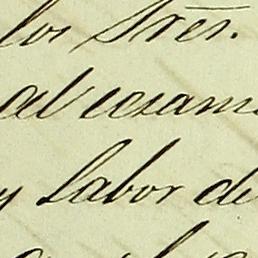 los Sres.
al exam
y labor de